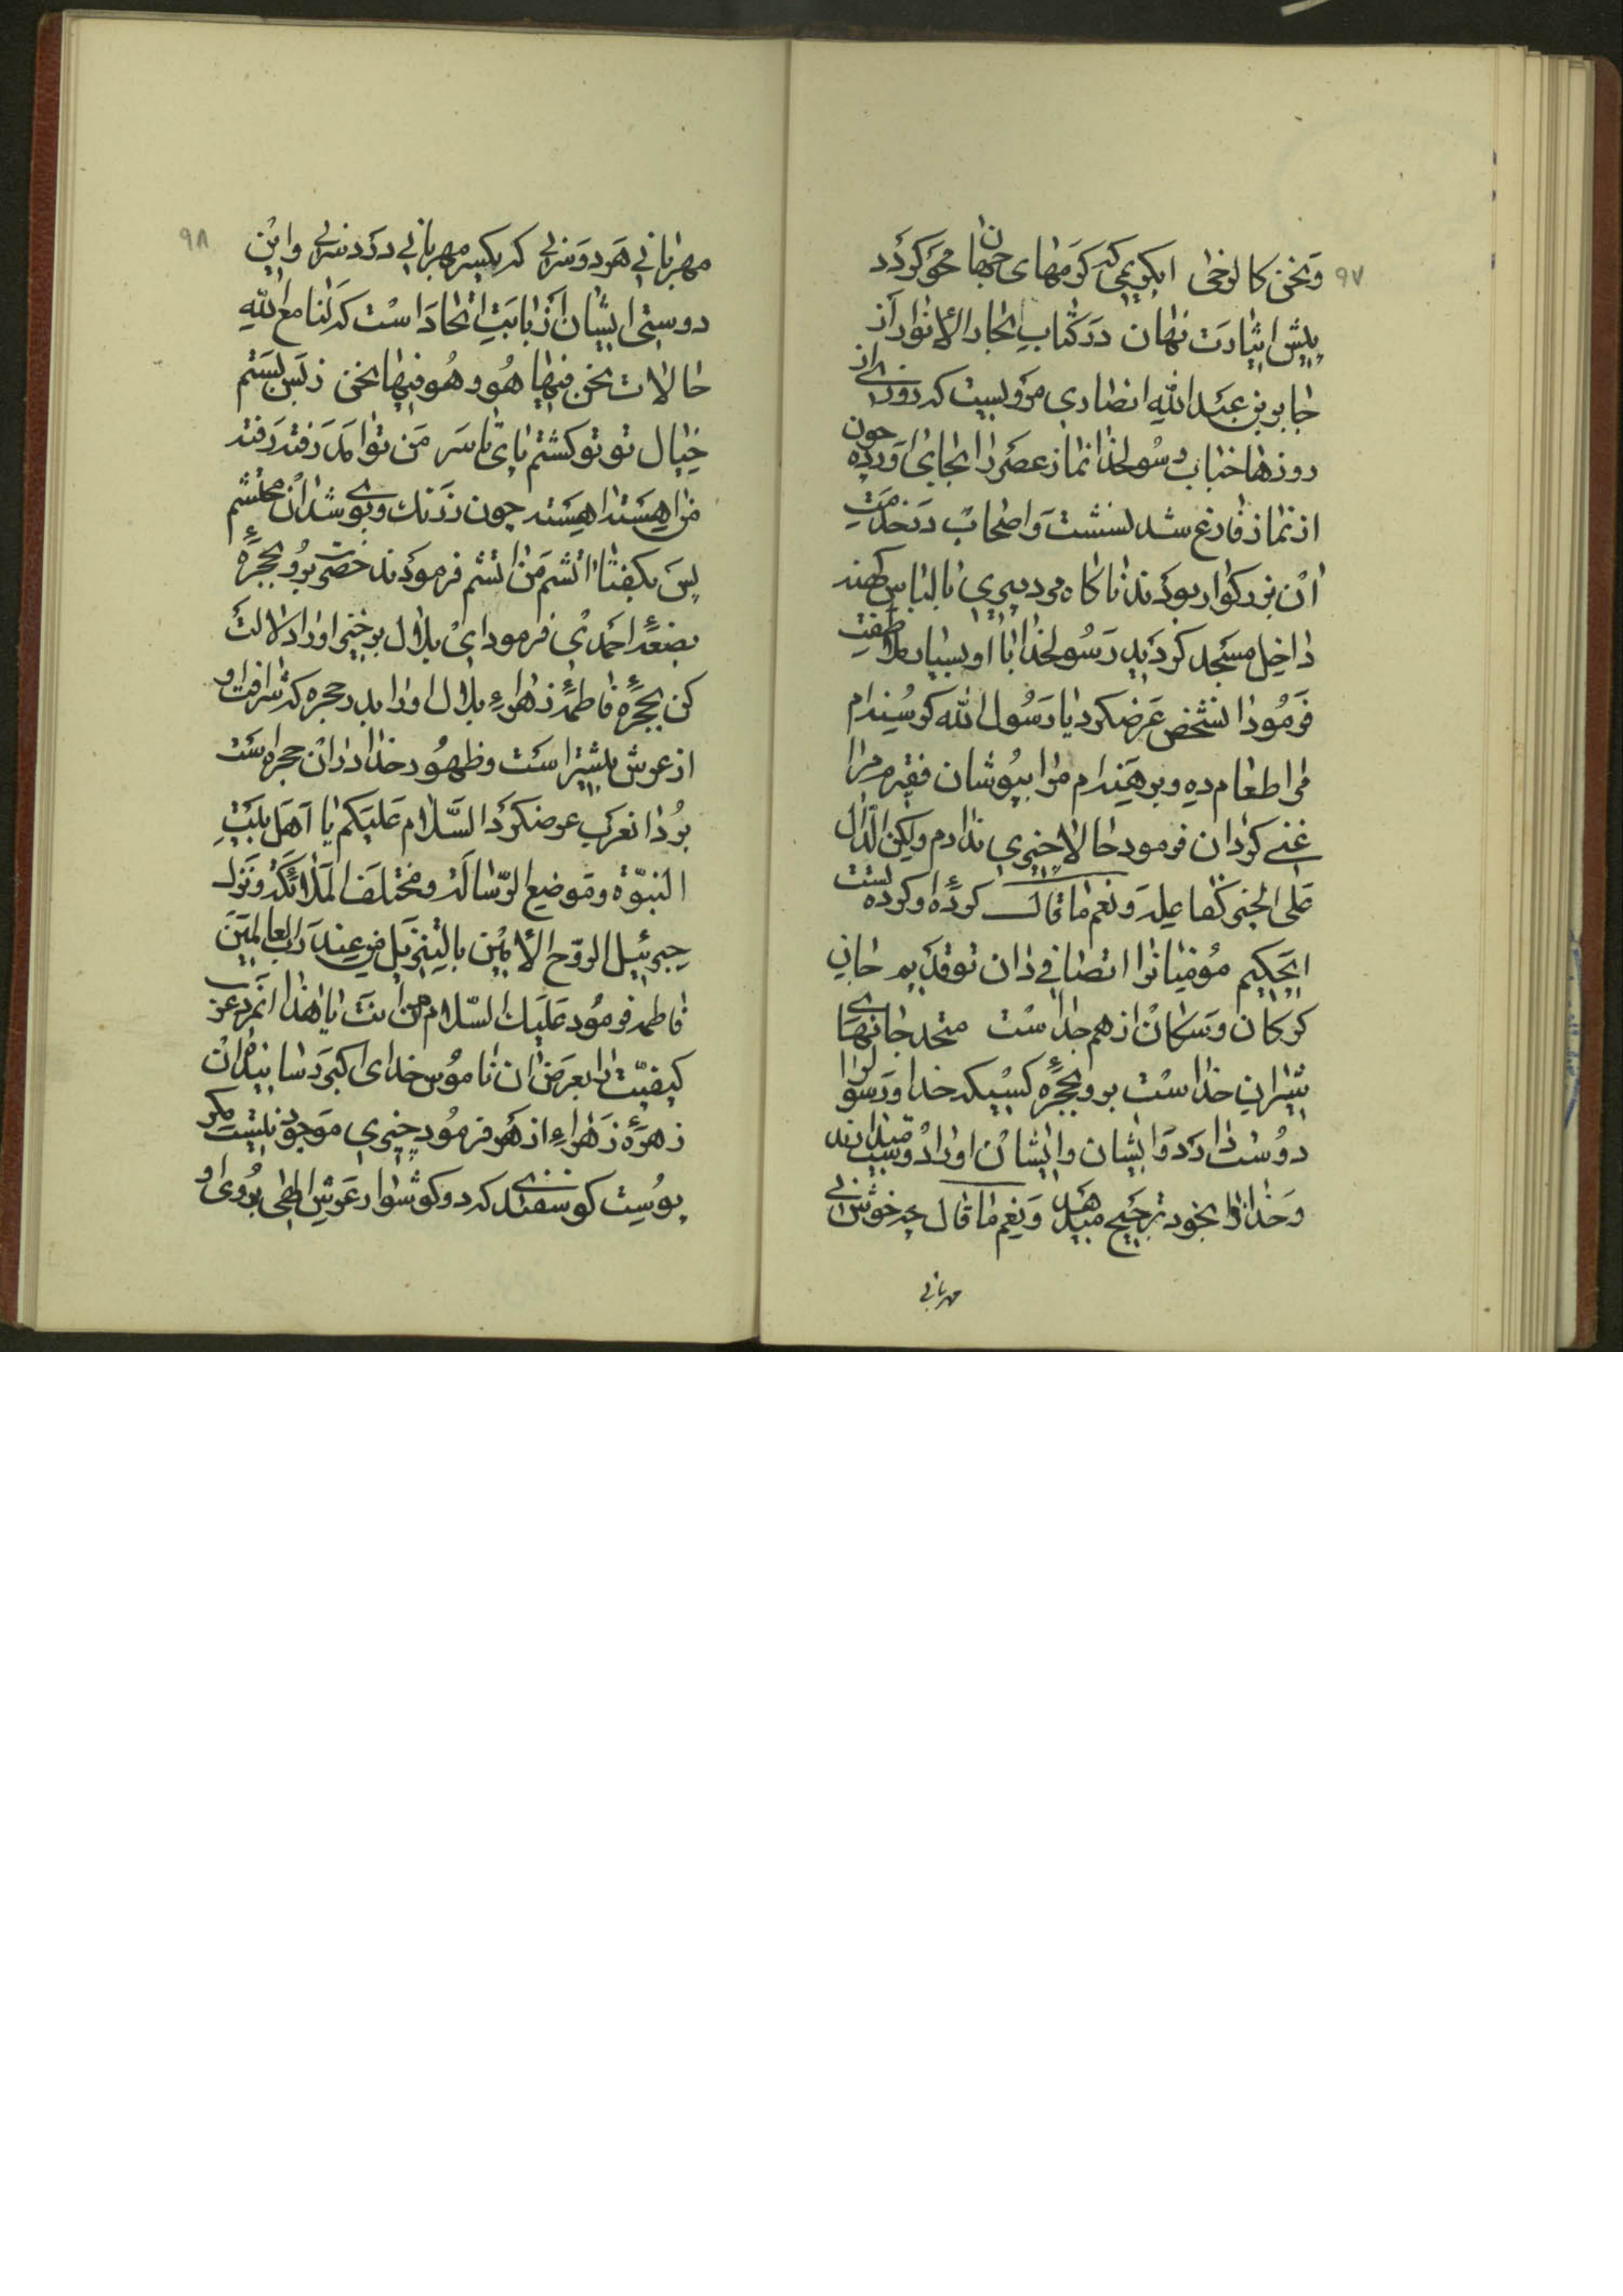 ۹۷
و نحن کالوخی ایکریمی که کرمهای جهان محو گردد
پیش ایثارت نهان در کتاب بحار الانوار از
جابر بن عبد الله انصاری مرویست که روزی از
روزها جناب رسولخدا نماز عصر را بجای آورده چون
از نماز فارغ شد نشست و اصحاب در خدمت
آن بزرگوار بودند ناگاه مرد پیری با لباس کهنه
داخل مسجد گردید رسولخدا با او بسیار ملاطفت
فرمود آنشخص عرضکرد یا رسول الله گرسنه‌ام
مرا طعام ده و برهنه‌ام مرا بپوشان فقیرم مرا
غنی گردان فرمود حالا چیزی ندارم ولکن الدال
علی الخیر کفاعله و نعم ما قال کرده او کرده تست
ای حکیم مؤمنانرا اتصالی دان تو قدیم جان
گرگان و سگان از هم جداست متحد جانهای
شیران خداست برو بحجره کسیکه خدا و رسول او را
دوست دارد و ایشان او را دوست میدارند
و خدا را بخود ترجیح میدهد و نعم ما قال چه خوش بی
مهربانی
۹۸
مهربانی هر دو سر بی که یکسر مهربانی درد سر بی و این
دوستی ایشان از بابت اتحاد است که لنا مع الله
حالات نحن فیها هو و هو فیها نحن ز بس بستم
خیال تو تو گشتم پای تا سر من تو آمد رفته رفته
پس بگفتا آتشم من آتشم فرمودند حضرت برو بحجره
بضعه احمدی فرمود ای بلال برخیز او را دلالت
کن بحجره فاطمه زهراء بلال او را بدر حجره که شرافت او
از عرش بیشتر است و ظهور خدا در آن حجره است
برد آنعرب عرضکرد السلام علیکم یا اهل بیت
النبوة و موضع الرسالة و مختلف الملائکة و نزول
جبرئیل الروح الأمین بالتنزیل من عند رب العالمین
فاطمه فرمود علیک السلام من انت یا هذا آنمرد عرب
کیفیت را بعرض آن ناموس خدای اکبر رسانید آن
زهره زهراء ازهر فرمود چیزی موجود نیست مگر
پوست گوسفندی که دو گوشوار عرش الهی بروی او